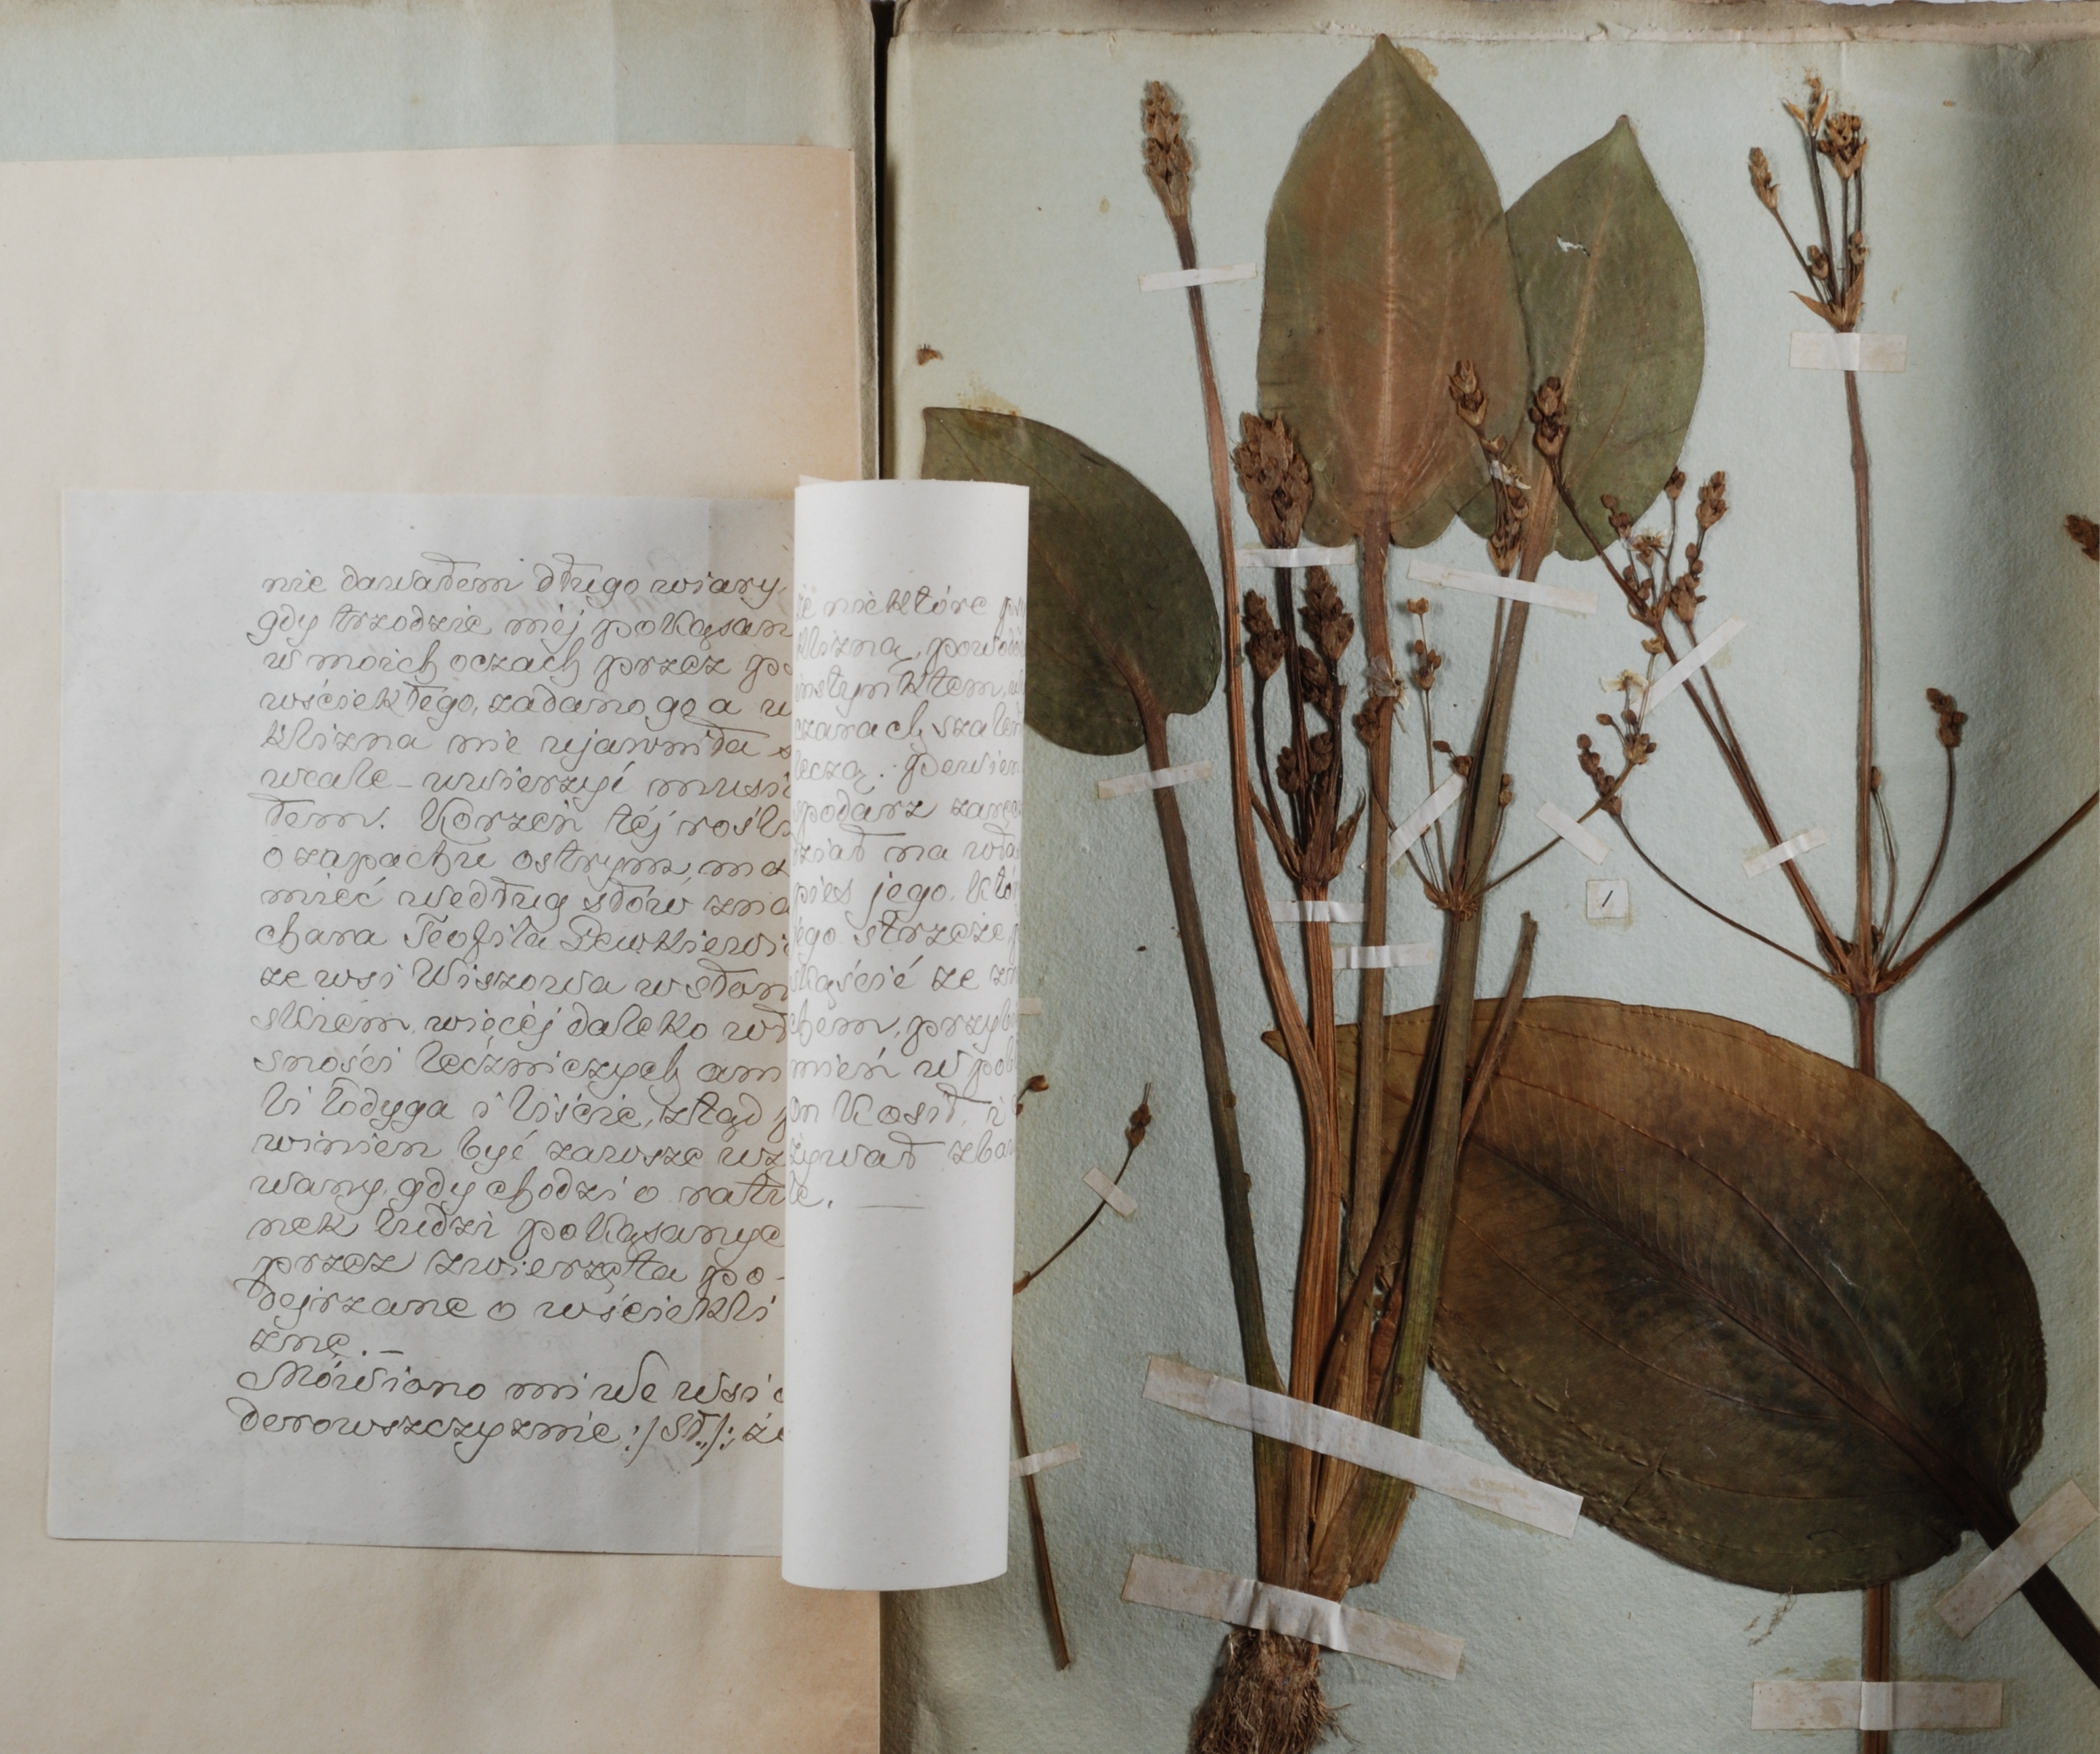 nie dawałem długo wiary,
gdy trzodzie mej pokąsan
w moich oczach przez ps
wściekłego, zadano go a w
klizna nie ujawniła s
wcale – uwierzyć musia
łem. Korzeń téj rośli
o zapachu ostrym, ma
mieć według słów zna
chara Teofila Lewkiewi
ze wsi Wiszowa w słon
skiem, więcéj daleko wł
sności leczniczych ani
li łodyga i liście, ztąd p
winien być zawsze uż
wany, gdy chodzi o ratu
nek ludzi pokąsanyc
przez zwierzęta po-
dejrzane o wściekli
znę. –
Mówiono mi we wsi
derowszczyznie :/Sł./: że
że niektóre
klizną,
instynktem,
czarach
leczą.
spodarz
dział na
pies jego,
jego strzeże
kąścić ze
chem,
mień w
on kosił, i
żywał
le.
1